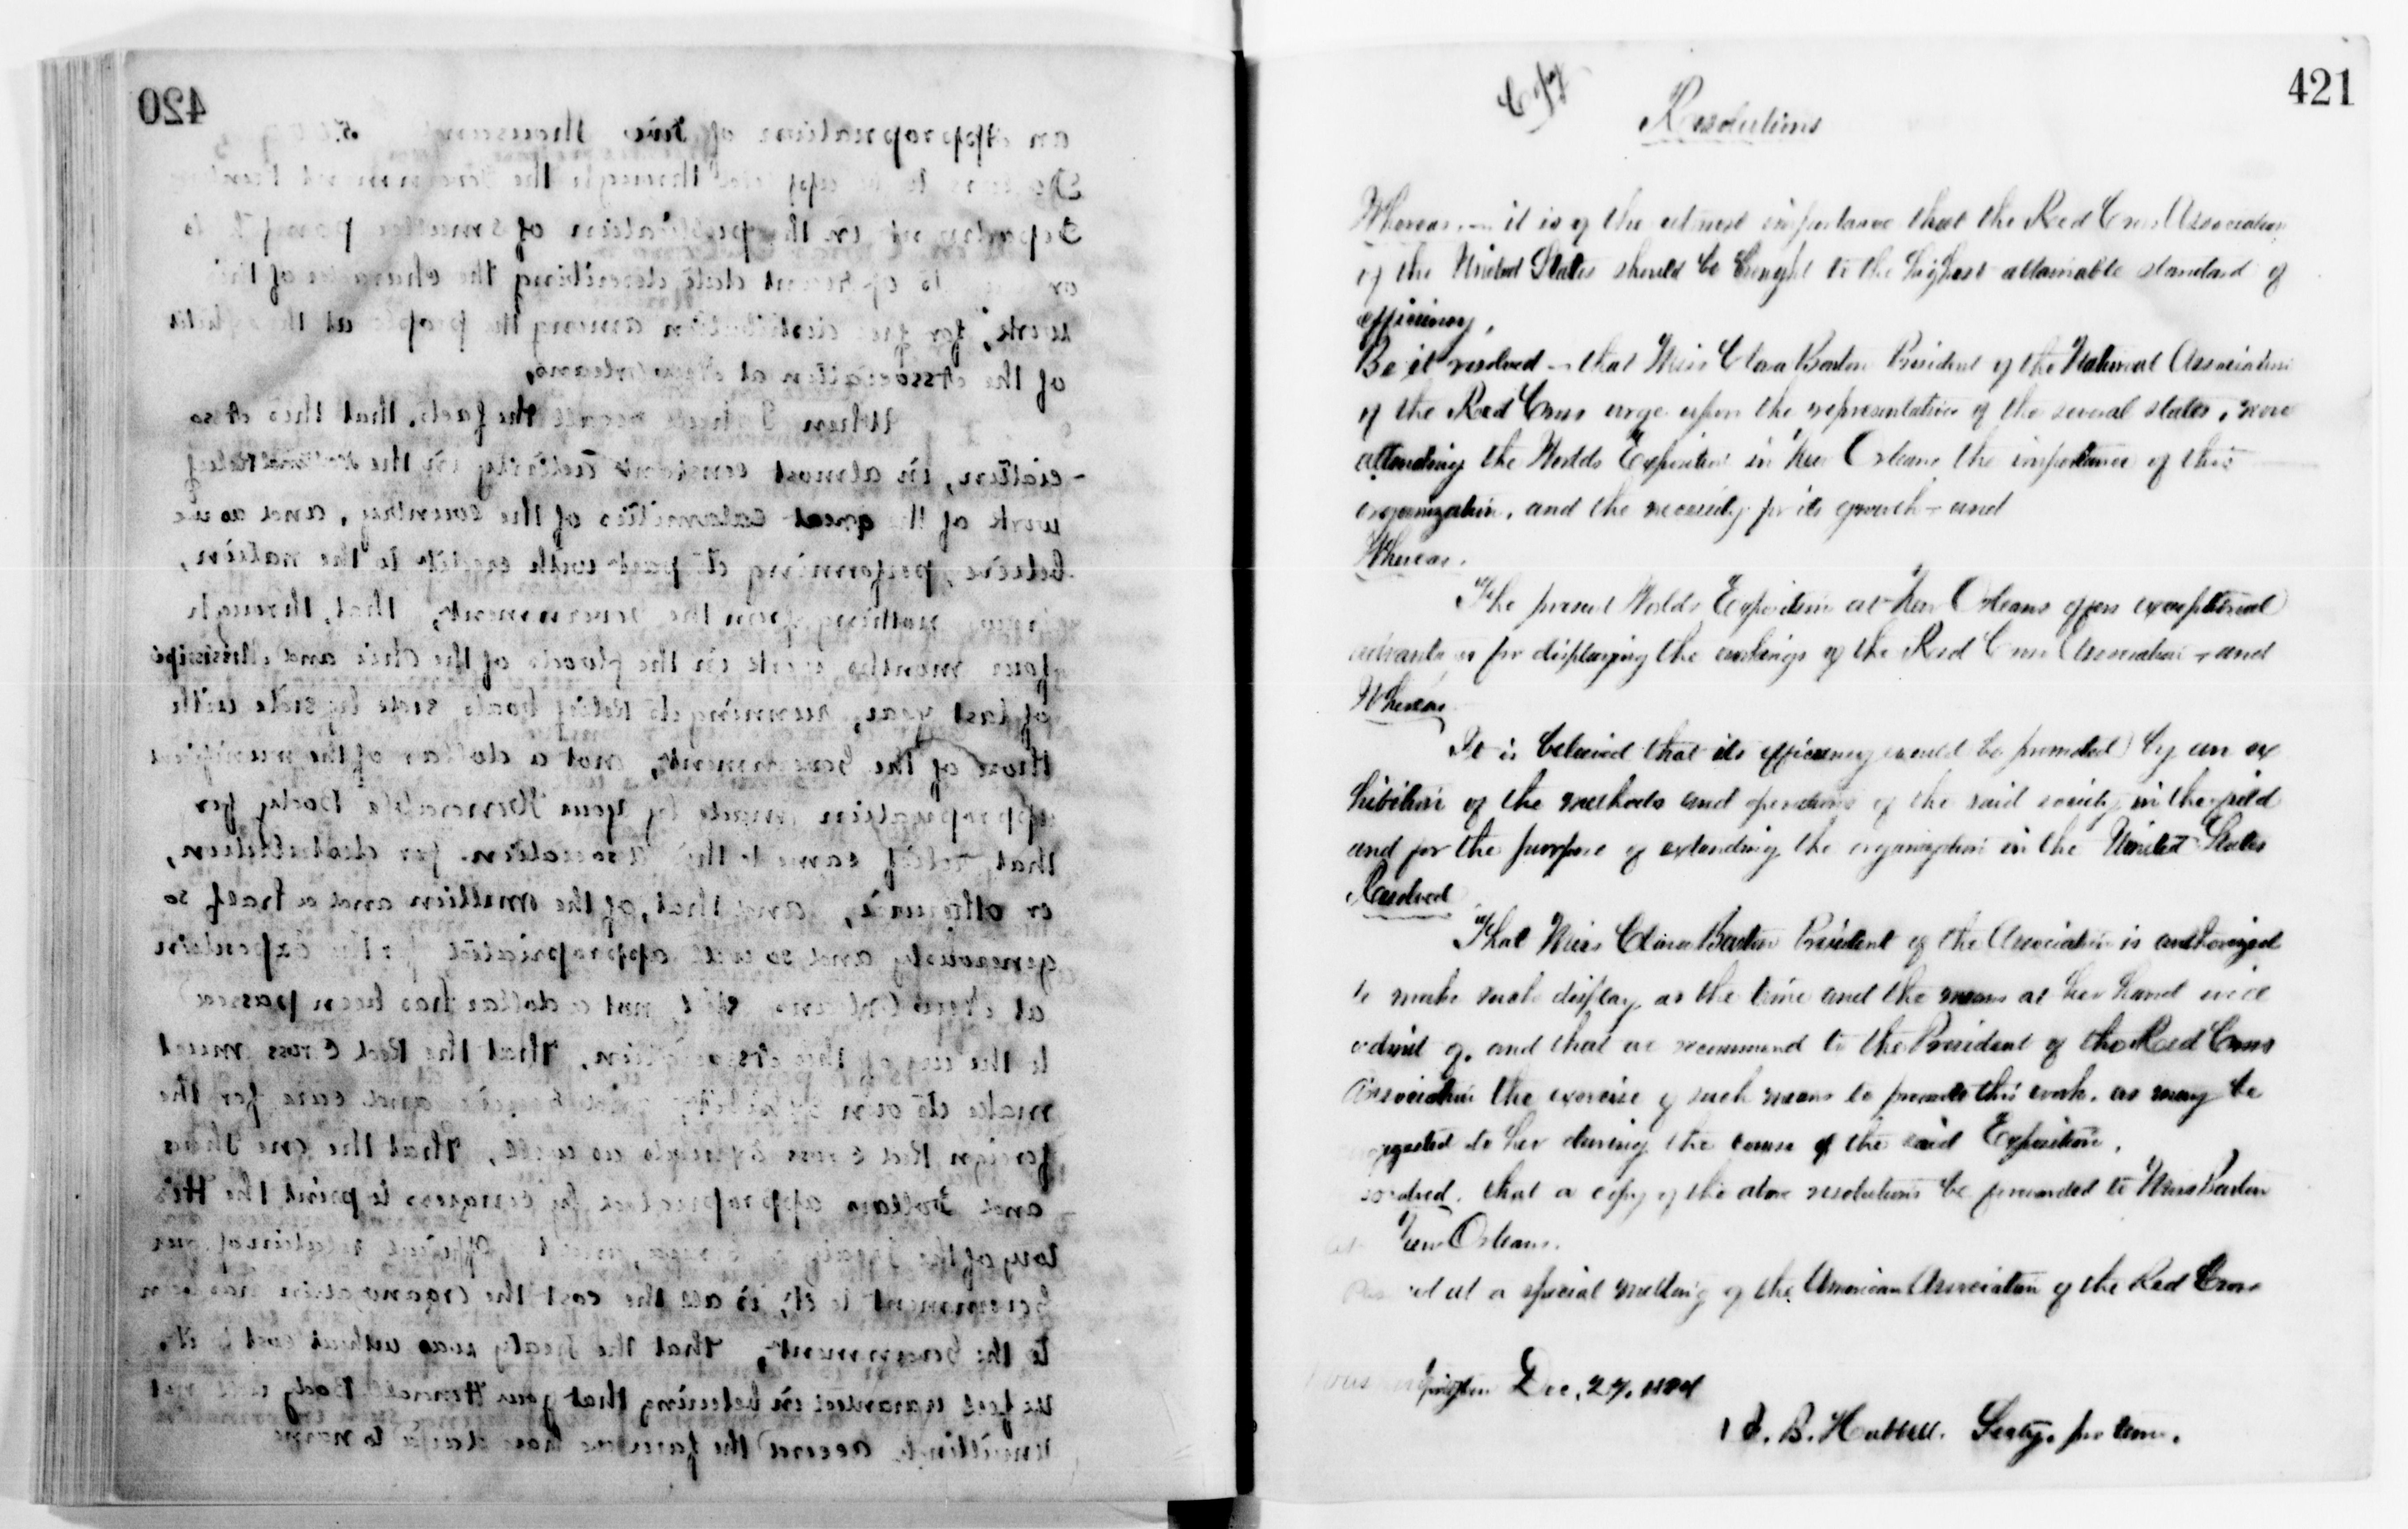 420
an Appropriation of five thousand
to be app through the Government Printing
Department in the publication of smaller pamphlets
or of present date describing the character of this
work, for free distribution among the people at the exhibits
of the Association at New Orleans,
When I shall recall the facts, that this Asso
-ciation, in almost constant activity in the
work of the great calamities of the country, and as we
believe, performing its part with credit to the nation,
nothing from the Government, that, through
four months work in the floods of the Ohio and Mississippi
of last year, running its Relief boats, side by side with
those of the Government, not a dollar of the munificent
appropriation made by your Honorable Body for
that relief came to this association for distribution,
or otherwise, and that, of the million and a half so
generously and so well appropriated for the Exposition
at New Orleans still not a dollar has been passed
to the use of this Association, that the Red Cross must
make its own exhibit, and care for the
foreign Red Cross Exhibits as well, that the one thous
and Dollars appropriated by Congress to print the His
tory of the Treaty of Geneva, relation of our
Government to it, is all the cost the organization has been
to the Government, that the Treaty was without cost to it.
We feel warranted in believing that your Honorable Body will not
unwillingly accord the favor we have dared to name
421
Copy
Resolutions
Whereas, it is of the utmost importance that the Red Cross Association
of the United States should be brought to the highest attainable standard of
efficiency,
Be it resolved - that Miss Clara Barton President of the National Association
of the Red Cross urge upon the representatives of the several states, now
attending the Worlds Exposition in New Orleans the importance of this
organization, and the necessity for its growth - and
Whereas,
The present Worlds Exposition at New Orleans offers exceptional
advantages for displaying the workings of the Red Cross Association - and
Whereas
It is believed that its efficiency would be promoted by an ex
hibition of the methods and operations of the said society in the field
and for the purpose of extending the organization in the United States
Resolved
That Miss Clara Barton President of the Association is authorized
to make such display as the time and the means at her hand will
admit of, and that we recommend to the President of the Red Cross
Association the exercise of such means to promote this work, as may be
suggested to her during the course of the said Exposition.
Resolved, that a copy of the above resolutions be forwarded to Miss Barton
at New Orleans.
Passed at a special meeting of the American Association of the Red Cross
Washington Dec. 27, 1884
J. B. Hubbell. Secty. pro tem.